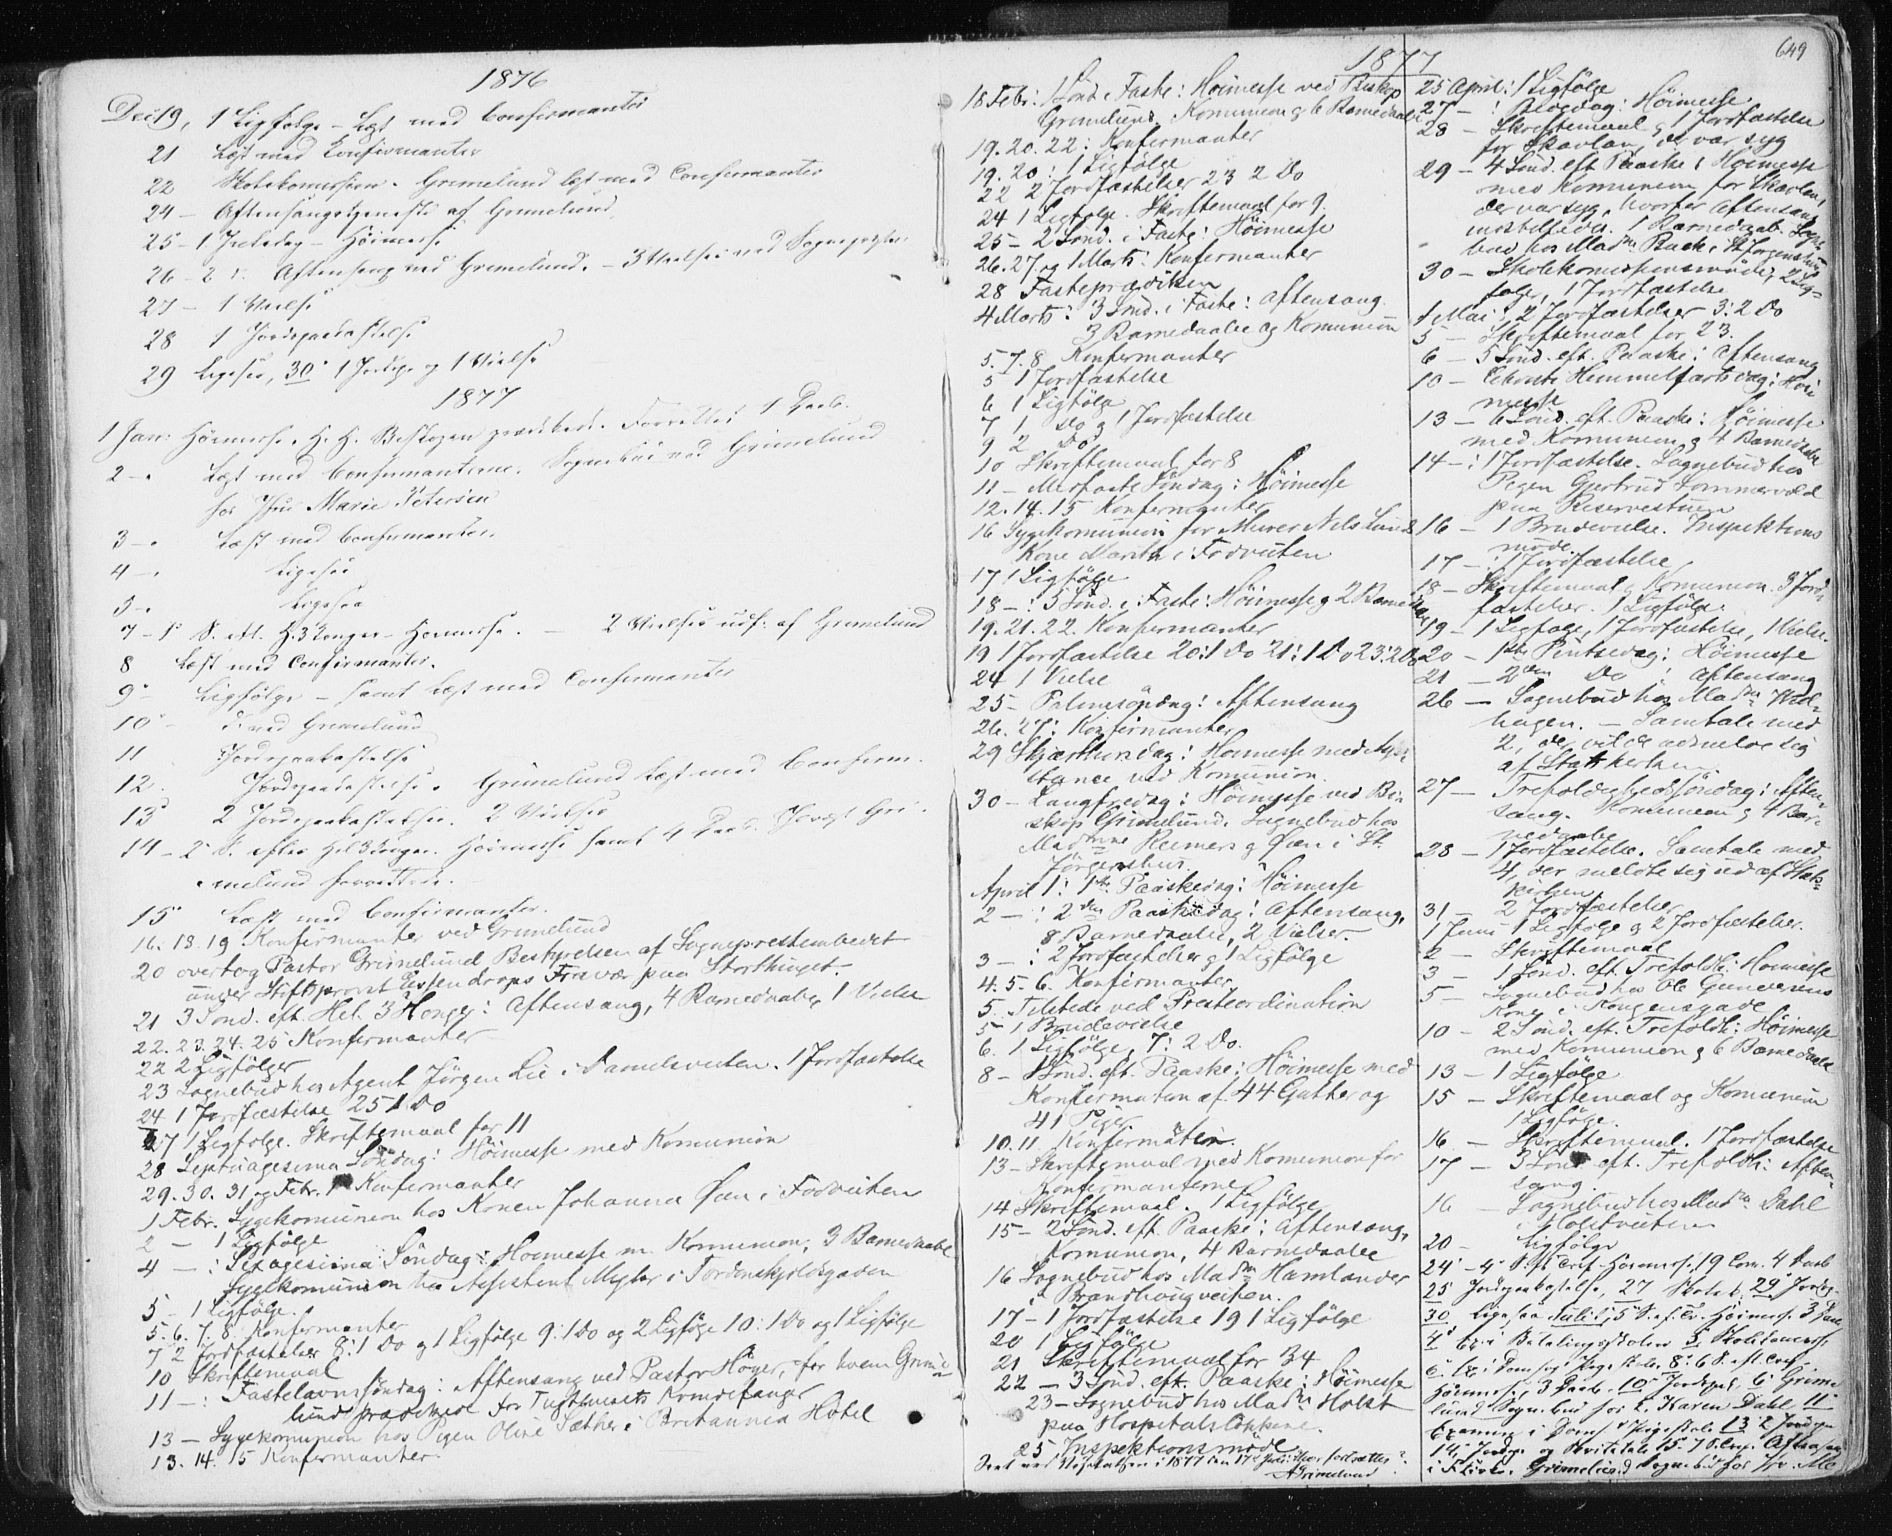 1876
Dec 19, 1 Ligfølge – Læst med Confirmanter
21 Læst med Confirmanter
22 Skolekomission. Grimelund læst med Confirmanter
24 – Aftensangstjeneste af Grimelund
25 – 1 Juledag – Höimesse
26 – 2 Aftensang ved Grimelund. – 3 Vielser ved Sognepræsten
27 – 1 Vielse
28 1 Jordpaakastelse
29 Ligesaa, 30 1 Jordp. og 1 Vielse
1877
1 Jan: Höimesse. H. H. Biskopen prædikede. Forrettet 1 Daab.
2 – Læst med Confirmanterne. Sognebud ved Grimelund
hos Jfru Marie Petersen
3 – Læst med Confirmanter.
4 – Ligesaa
5 – Ligesaa
7 – 1 S. eft. H. 3 Konger – Höimesse. – 2 Vielser udf. af Grimelund
8 Læst med Confirmanter.
9 – Ligfölge – samt læst med Confirmanter
10 – d: ved Grimelund
11 Jordpaakastelse
12. Jordpaakastelse. Grimelund læst med Confirm.
13 2 Jordpaakastelser. 2 Vielser
14 – 2 S. efter Hel 3 Konger. Höimesse samt 4 Daab. Gri-
melund forrettede.
15 Læst med Confirmanter.
16. 18. 19 Konfirmanter ved Grimelund
20 overtog Pastor Grimelund Bestyrelsen af Sogneprestembedet
under Stiftsprovst Essendrops Fravær paa Storthinget.
21 3 Sönd. eft. Hel. 3 Konger: Aftensang, 4 Barnedaabe, 1 Vielse
22. 23. 24. 25 Konfermanter
22 2 Ligfölger
23 Sognebud hos Agent Jörgen Lie i Danielsveiten. 1 Jordfæstelse
24 1 Jordfæstelse 25 1 Do
27 1 Ligfölge. Skriftemaal for 11
28 Septuagesima Söndag: Höimesse med Komunion
29. 30. 31 og Febr. 1 Konfermanter
1 Febr. Sygekomunion hos Konen Johanna Öien i Fodveiten
2 – 1 Ligfölge
4 – : Sexagesima Söndag: Höimesse m. Komunion, 3 Barnedaabe
Sygekomunion hos Assistent Mylar i Tordenskjoldsgaden
5 – 1 Ligfölge.
5. 6. 7. 8. Konfermanter
7 2 Jordfæstelser 8: 1 Do og 1 Ligfölge 9: 1 Do og 2 Ligföge 10: 1 Do og 1 Ligfölge
10 Skriftemaal
11 – : Fastelavnssöndag: Aftensang ved Pastor Höyer, for hvem Grime-
lund prædikede for Tugthusets Romdefanger
13 – Sygekomunion hos Pigen Oline Sæther i Britannia Hotel
13. 14. 15 Konfermanter.
1877
18 Febr: 1 Sönd. i Faste: Höimesse ved Biskop
Grimelund. Komunion og 6 Barnedaabe
19. 20. 22: Konfermanter
19. 20: 1 Ligfölge
22 2 Jordfæstelser 23 2 Do
24 1 Ligfölge. Skriftemaal for 9.
25 – 2 Sönd. i Faste: Höimesse
26. 27 og 1 Marts: Konfermanter
28 Fasteprædiken
4 Marts: 3 Sönd. i Faste: Aftensang.
3 Barnedaabe og Komunion
5. 7. 8. Konfermanter
5 1 Jordfæstelse
6 1 Ligfölge
7 1 Do og 1 Jordfæstelse
9 2 Do
10 Skriftemaal for 8
11 – Midfaste Söndag: Höimesse
12. 14. 15 Konfermanter
16 Sygekomunion for Murer Nils Lunds
Kone Marith i Fodveiten
17 1 Ligfölge
18 – : 5 Sönd. i Faste: Höimesse og 2 Barnedaabe
19. 21. 22. Konfermanter
19 1 Jordfæstelse 20: 1 Do 21: 1 Do 23: 2 Do
24 1 Vielse
25 – Palmesöndag: Aftensang
26. 27: Konfirmanter
29 Skjærthorsdag: Höimesse med Assi-
stance ved Komunion.
30 – Langfredag: Höimesse ved Bi-
skop Grimelund. Sognebud hos
Madmme Reemers og Öien i St.
Jörgenshus.
April 1: 1ste Paaskedag: Höimesse
2 – : 2den Paaskedag: Aftensang,
8 Barnedaabe, 2 Vielser.
3 – : 2 Jordfæstelser og 1 Ligfölge
4. 5. 6. Konfermanter
5. Tilstede ved Presteordination
5 1 Brudevielse
6. 1 Ligfölge, 7: 2 Do.
8 – 1 Sönd. eft. Paaske: Höimesse med
Konfermation af 44 Gutter og
41 Piger.
10. 11. Konfermation.
13 – Skriftemaal med Komunion for
Konfermanterne
14 Skriftemaal. 1 Ligfölge
15 – 2 Sönd. eft. Paaske: Aftensang,
Komunion, 4 Barnedaabe
16 Sognebud hos Madm Hamlander
i Brandhougveiten.
17 – 1 Jordfæstelse 19 1 Ligfölge
20 1 Ligfölge
21 Skriftemaal for 34
22 – 3 Sönd. eft. Paaske: Höimesse
23 – Sognebud hos Madm Holst
paa Hospitalslökkene.
25 Inspektionsmöde
Seet ved i 1877 den 17de Juni
AGrimelund
649
25 April: 1 Ligfölge
27 – : Bededag: Höimesse.
28 – Skriftemaal og 1 Jordfæstelse
for Skavlan, der var syg
29 – 4 Sönd. eft. Paaske: Höimesse
med Komunion for Skavlan,
der var syg, hvorfor Aftensang
indstilledes. 1 Barnedaab. Sogne-
bud hos Madm Back i St Jörgenshus
30 – Skolekomissionsmöde, 2 Lig-
følger, 1 Jordfæstelse
1 Mai: 2 Jordfæstelser 3: 2 Do
5 – Skriftemaal for 23.
6 – 5 Sönd. eft. Paaske: Aftensang
10 – Christi Himmelfartsdag: Höi-
messe
13 – 6 Sönd. eft. Paaske: Höimesse
med Komunion og 4 Barnedaabe
14 – : 1 Jordfæstelse. Sognebud hos
Pigen Gjertrud Sommervold
paa Reservestuen
16 – 1 Brudevielse. Inspektions
möde
17 – : 1 Jordfæstelse
18 – Skriftemaal og Komunion. 3 Jord-
fæstelser. 1 Ligfölge.
19 – 1 Ligfölge, 1 Jordfæstelse, 1 Vielse.
20 – 1ste Pintsedag: Höimesse
21 – 2den Do: Aftensang
26 – Sognebud hos Madm Wul-
hagen. – Samtale med
2, der vilde udmelde sig
af Statskirken.
27 – Trefoldighedssöndag: Aften-
sang. Komunion og 4 Bar-
nedaabe
28 – 1 Jordfæstelse. Samtale med
4, der meldte sig ud af Stats-
kirken
31 – 2 Jordfæstelser
1 Juni 1 Ligfölge og 2 Jordfæstelser.
2 – Skriftemaal
3 – 1 Sönd. eft. Trefoldh: Höimesse
5 – Sognebud hos Ole Gunnersens
Kone i Kongensgade
10 – 2 Sönd. eft. Trefoldh: Höimesse
med Komunion og 6 Barnedaabe
13 – 1 Ligfölge
15 – Skriftemaal og Komunion
1 Ligfölge.
16 – Skriftemaal. 1 Jordfæstelse
17 – 3 Sönd eft. Trefoldh: Aften-
sang
16 – Sognebud hos Madm Dahl
i Holstveiten
20 – Ligfölge
24 – 4 S. eft Tref. Höimesse, 19 Com. 4 Daab
25 Jordpaakastelse, 27 Skolek, 29 Jordp.
30 Ligesaa Juli 1, 5 S. ef. Tr. Höimesse 3 Daab
4 Ex i Betalingsskolen 5 Skolekomiss.
6 Ex i Domsog Pige Skole. 8 6 S. eft. Tref.
Höimesse, 3 Daab. 10 Jordpaak. 6 Grime
lund Sognebud hos E. Karen Dahl 11
Examen i Doms. Pigeskole 13 2 Jordpaa
14 Jordp. og 15 7 S. Tref. Aftensang
Grimelund Sognebud hos